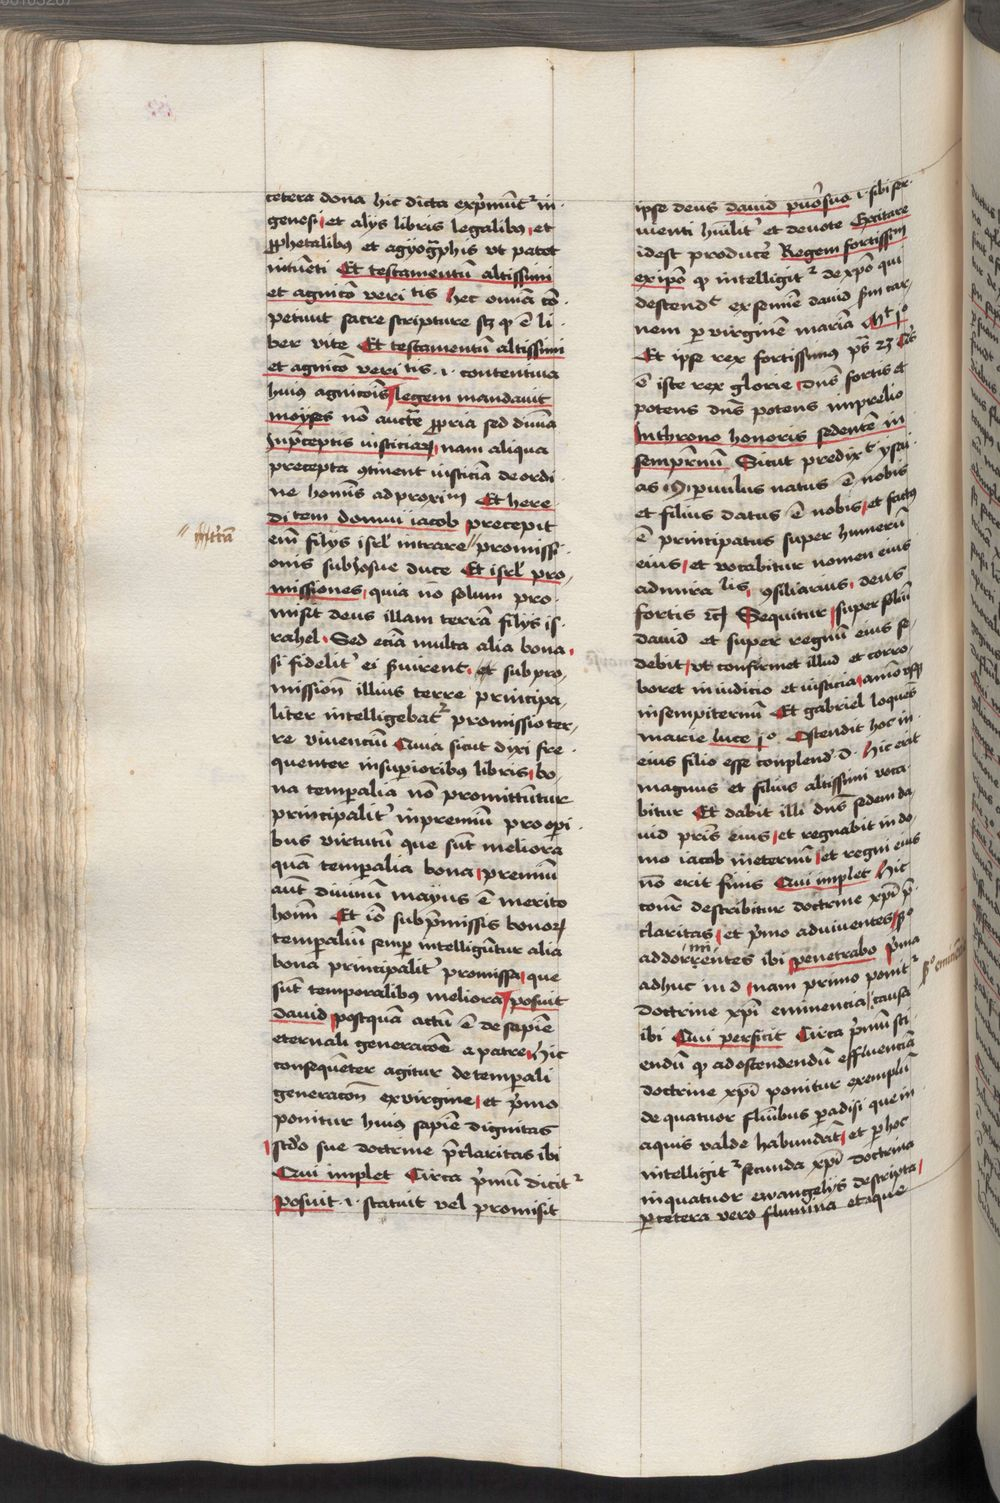 cetera dona hic dicta exp̄mūt᷑ in
genesi et alijs libris legalibus et
ꝓphetalibus et agyog̃phis vt patet
intuēti Et testamentū altissimi
et agnicō veri tis Hec omnia cō
petiuit sacre scripture sꝫ qꝫ ē li
ber vite Et testamentū altissimi
et agnicō veri tis .i. contentiua
huiꝰ agnicōis legem mandauit
moyses nō auctẽ ꝓpria sed diuīa
In p̄ceptis iusticiaꝝ nam aliqua
precepta ꝯtinent iusticiā de ordi
ne homīs ad proximū Et here
ditem domui iacob precepit
eīm filijs isrl' intrare promissi
onis sub Josue duce Et isrl' pro
missiones quia nō solum pro
misit deus illam terrā filijs is
rahel Sed eciā multa alia bona
si fidelit' ei s̄uirent et sub pro
missiōn illius terre principa
liter intelligebat᷑ promissio ter
re viuenciū Quia sicut dixi fre
quenter in supioribus libris bo
na temꝑalia nō promittūtur
principalit' in premiū pro opi
bus virtutū que sūt meliora
quā temꝑalia bona premiū
aūt diuinū mayus ē merito
homī Et iō sub p̄missis bonoꝝ
temꝑaliū semꝑ intelligūtur alia
bona principalit' promissa que
sūt temporalibus meliora posuit
dauid postquā actū ē de sapiē
eternali generacōe a patre hic
consequēter agitur de temꝑali
generacōn ex virgine et p̄mo
ponitur huiꝰ sapiē dignitas
scdo sue doctrine p̄claritas ibi
Qui implet Circa p̄mū dicit᷑
posuit .i. statuit vel promisit
ipse deus dauid puō suo .i. sibi ser
uienti hūilit' et deuote Excitare
idest producẽ Regem fortissimū
ex ipō qꝫ intelligit᷑ de xpō qui
descendᵗ ex semīe dauid s̄m car
nem ꝑ virginē mariā Mᵗ jº
Et ipse rex fortissimus ps̄ 23
ē iste rex glorie dn̄s fortis et
potens dn̄s potens in prelio
In throno honoris sedentē in
sempr̄nū Sicut predixᵗ ysai
as 9 puulus natus ē nobis
et filius datus ē nobis et factꝰ
ē principatus super humerū
eius et vocabitur nomen eius
admira lis ꝯsiliarius deus
fortis ꝛcꝭ Sequitur super soliū
dauid et super regnū eius se
debit vt confirmet illud et corro
boret in iudicio et iusticia
in sempiternū Et gabriel loquēs
marie luce jº Ostendit hoc in
eius filio esse conplend' d. hic erit
magnus et filius altissimi voca
bitur Et dabit illi dn̄s sedem da
uid pr̄is eius et regnabit in do
mo iacob in eternū et regni eius
nō erit finis Qui implet Hic
describitur doctrine xp̄i p̄
claritas et p̄mo
ibi penetrabo p̄ma
adhuc in d nam primo ponit᷑
doctrine xp̄i eminencia causa
ibi Qui perficit Circa p̄mū sci
endū qꝫ ad ostendendū effluenciā
doctrine xp̄i ponitur exemplū
de quatuor fluībus ꝑadisi que in
aquis valde habundāt et ꝑ hoc
intelligit᷑ fecunda xp̄i doctrina
in quatuor ewangelijs descripta
ꝑ cetera vero flumina et aque